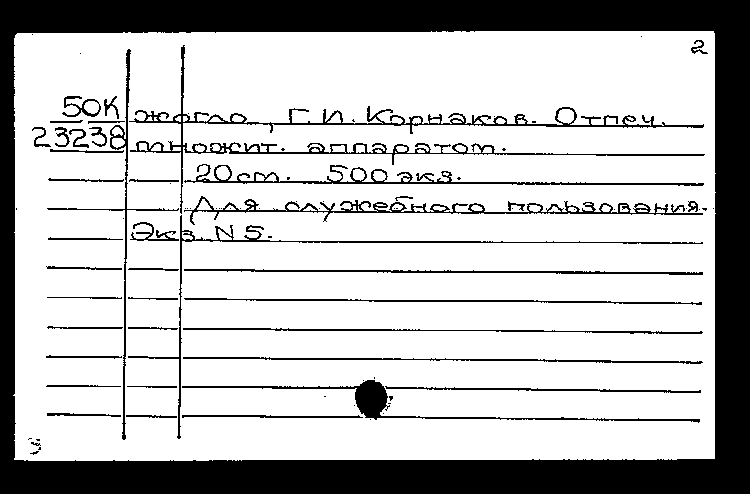 2
50К жогло, Г.И. Корнаков. Отпеч.
23238 множит. аппаратом.
20см. 500 экз.
Для служебного пользования.
Экз. N 5.
3